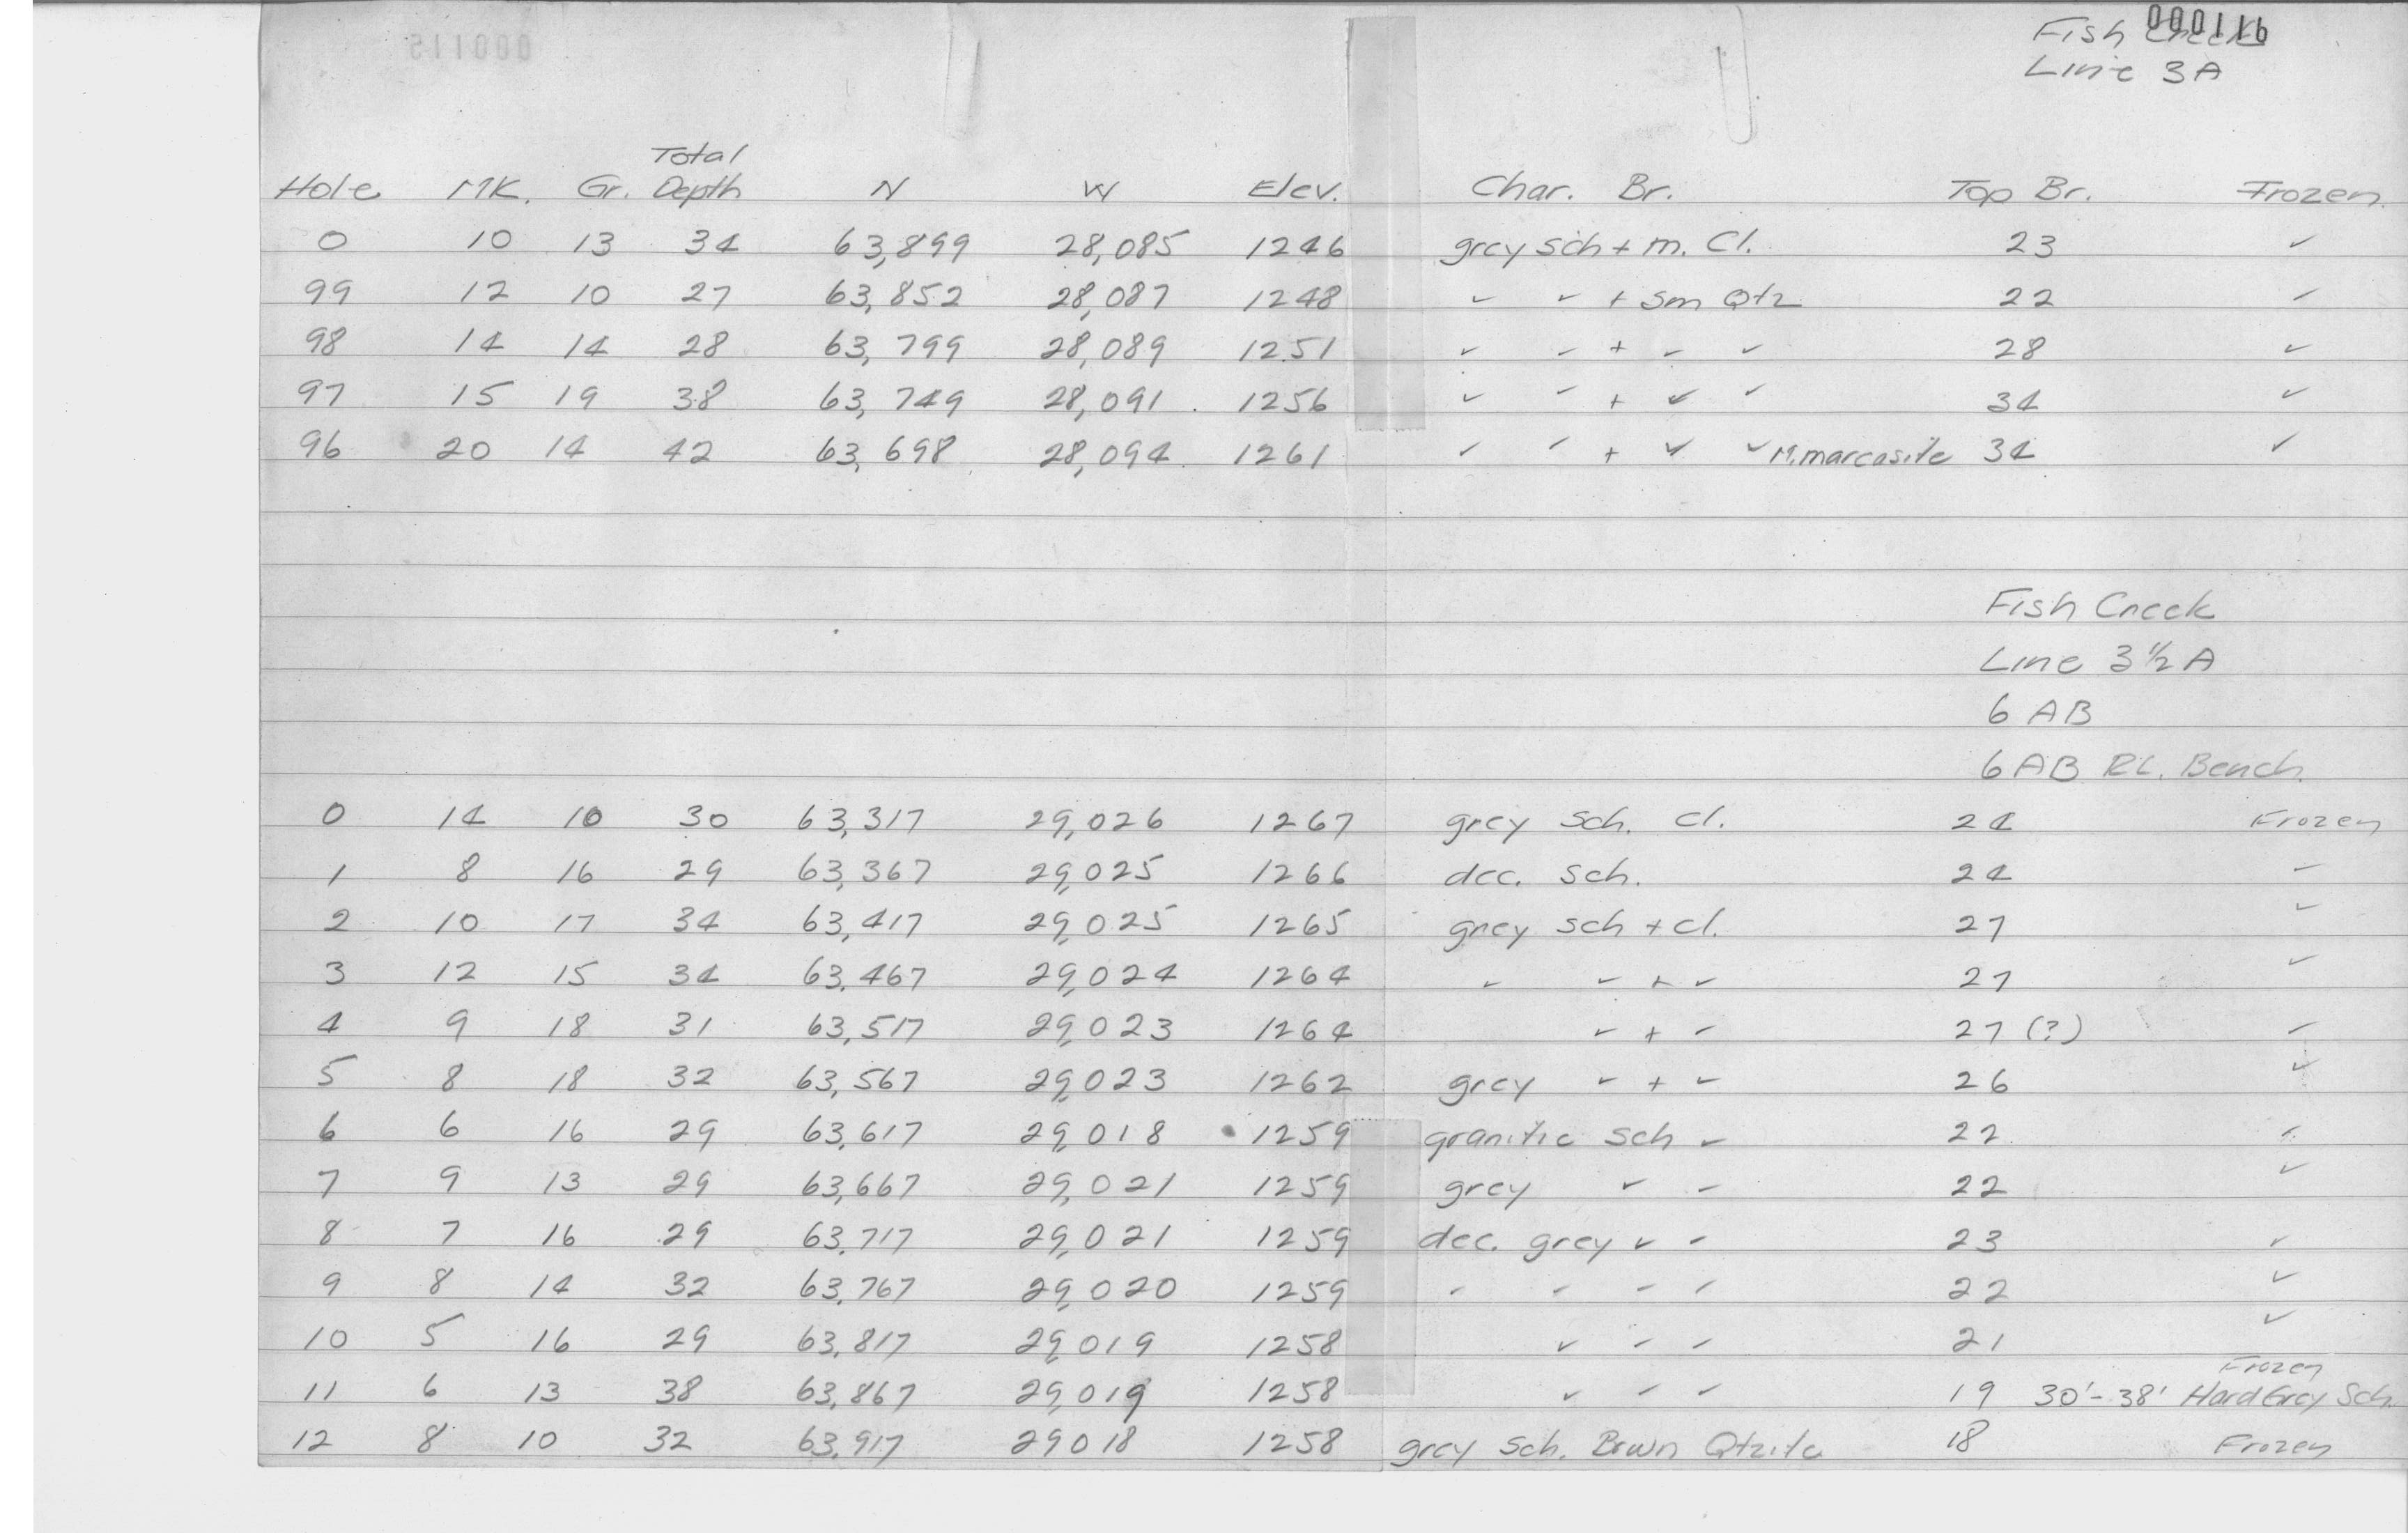 000115
000116
Fish Creek
Line 3A
Total
Hole MK. Gr. Depth N W Elev. Char. Br. Top Br. Frozen
0 10 13 34 63,899 28,085 1246 grey sch + m. Cl. 23 ✓
99 12 10 27 63,852 28,087 1248 ✓ ✓ + sm Qtz 22 ✓
98 14 14 28 63,799 28,089 1251 ✓ ✓ + ✓ ✓ 28 ✓
97 15 19 38 63,749 28,091 1256 ✓ ✓ + ✓ ✓ 34 ✓
96 20 14 42 63,698 28,094 1261 ✓ ✓ + ✓ ✓ M. marcasite 34 ✓
Fish Creek
Line 3½ A
6 AB
6 AB RL. Bench
0 14 10 30 63,317 29,026 1267 grey sch. cl. 24 Frozen
1 8 16 29 63,367 29,025 1266 dec. sch. 24 ✓
2 10 17 34 63,417 29,025 1265 grey sch + cl. 27 ✓
3 12 15 34 63,467 29,024 1264 ✓ ✓ + ✓ 27 ✓
4 9 18 31 63,517 29,023 1264 ✓ + ✓ 27 (?) ✓
5 8 18 32 63,567 29,023 1262 grey ✓ + ✓ 26 ✓
6 6 16 29 63,617 29,018 1259 granitic sch ✓ 22 ✓
7 9 13 29 63,667 29,021 1259 grey ✓ ✓ 22 ✓
8 7 16 29 63,717 29,021 1259 dec. grey ✓ ✓ 23 ✓
9 8 14 32 63,767 29,020 1259 ✓ ✓ ✓ ✓ 22 ✓
10 5 16 29 63,817 29,019 1258 ✓ ✓ ✓ 21 ✓
Frozen
11 6 13 38 63,867 29,019 1258 ✓ ✓ ✓ 19 30'-38' Hard Grey Sch.
12 8 10 32 63,917 29018 1258 grey sch. Brwn Qtzite 18 Frozen